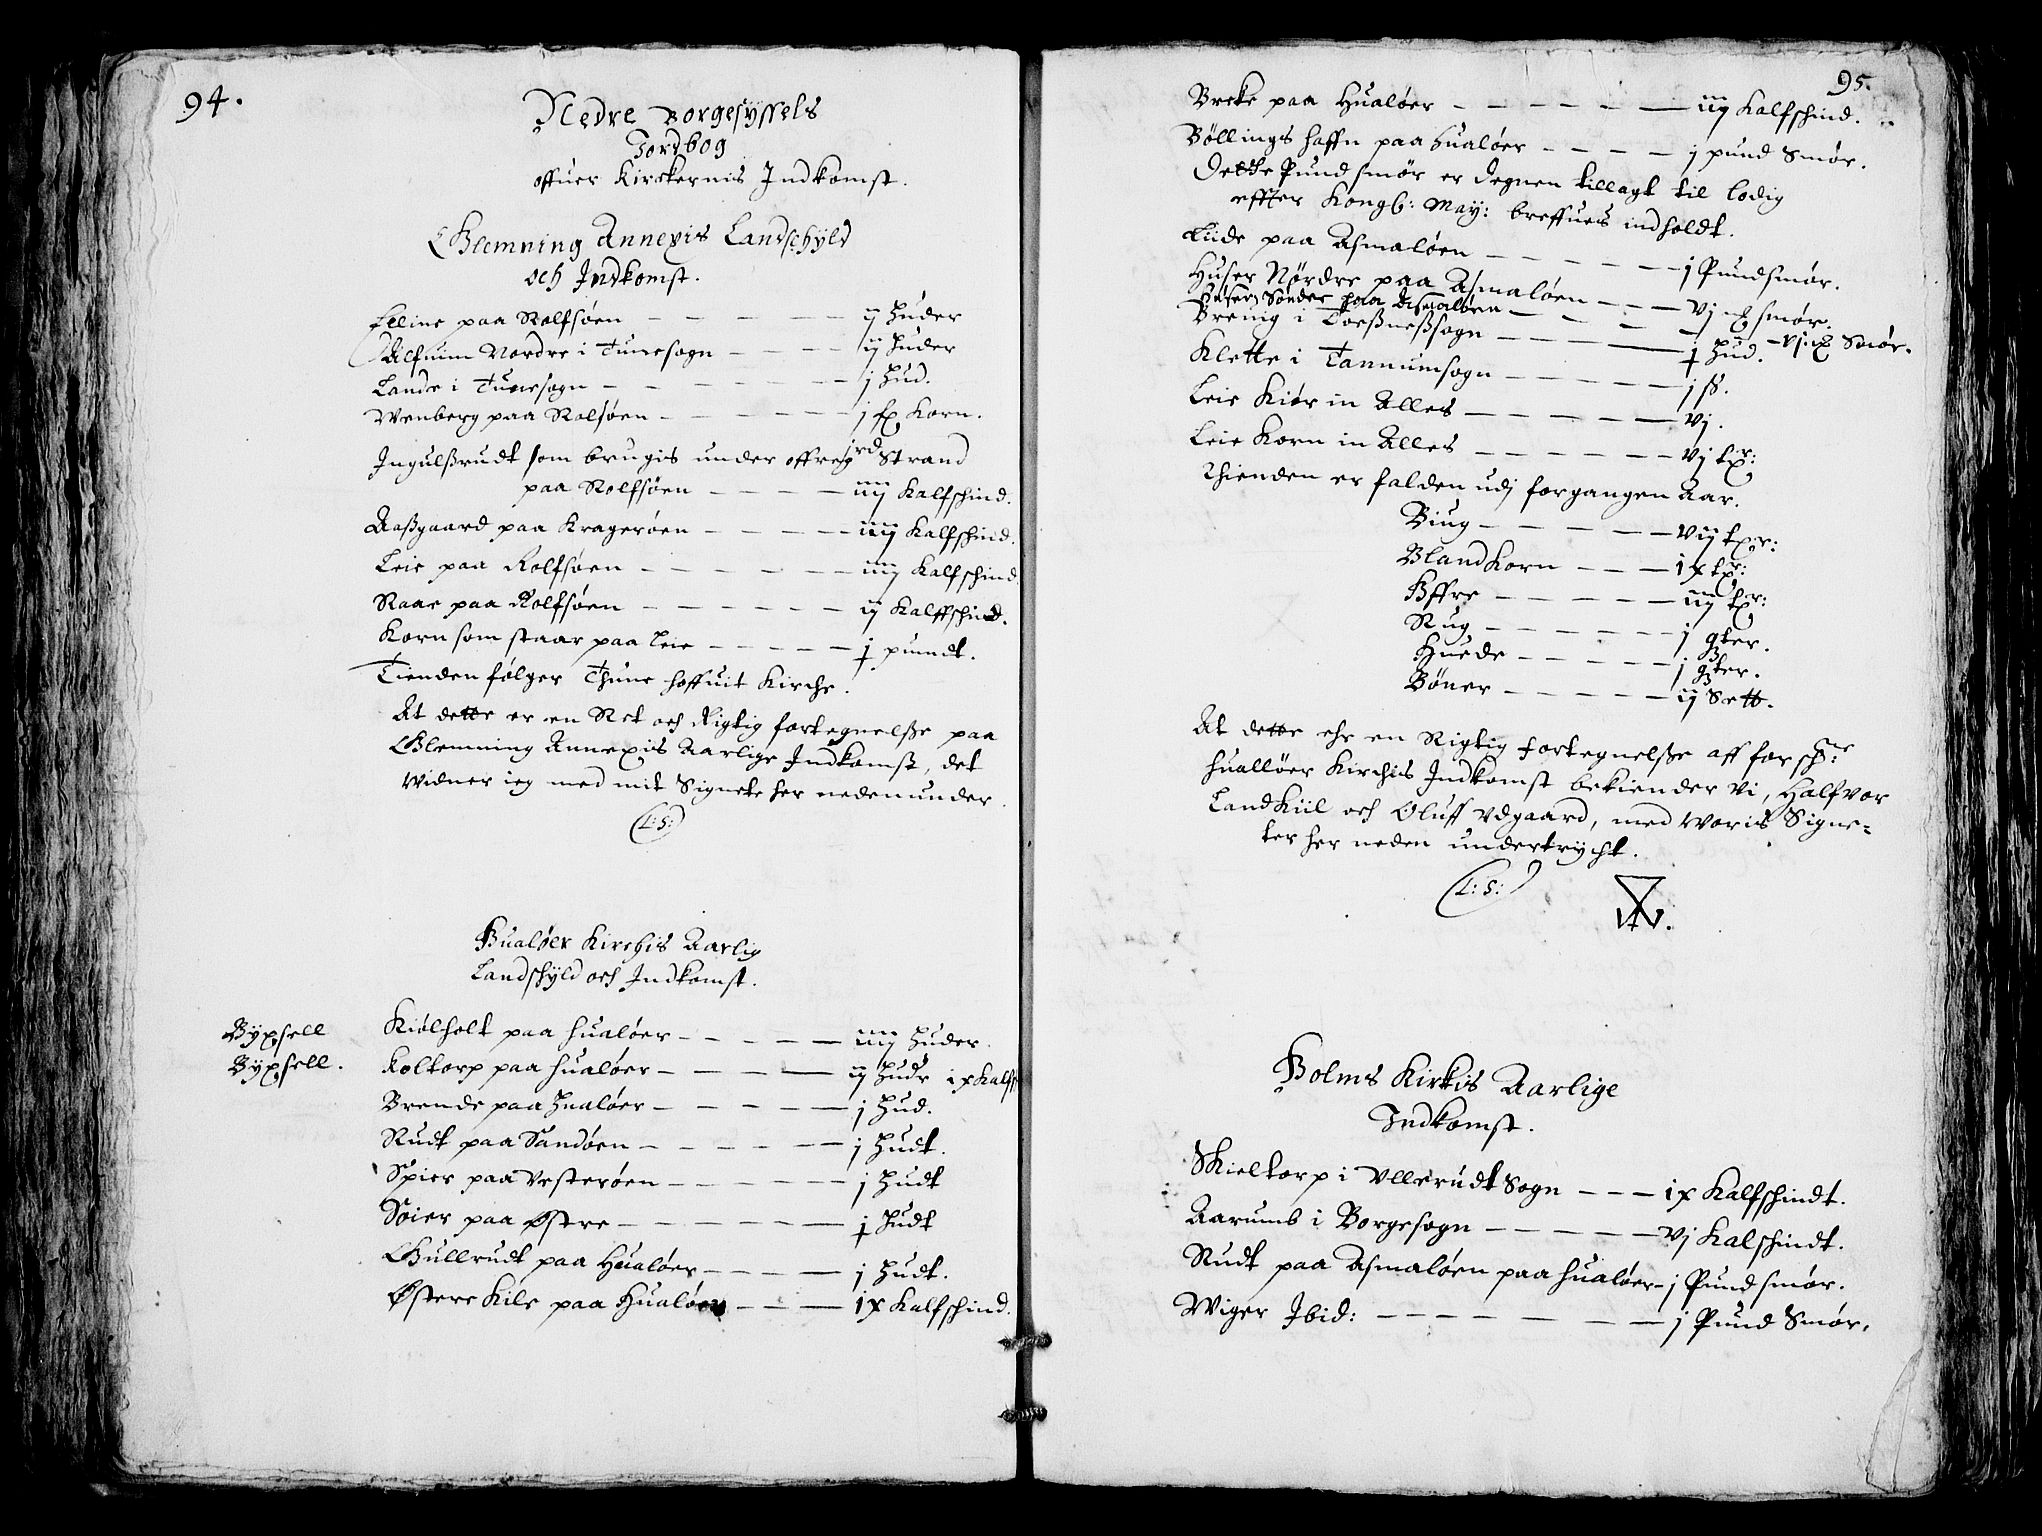 94.
Nedre Borgesyssels
Jordbog
offuer Kirckernis Indkomst.
Glemning Annexis Landschyld
och Indkomst.
Elline paa Rolfsöen — ij Huder
Alfuim Nordre i Tunesogn — ij Huder
Lande i Tunesogn — j Hud.
Wenberg paa Rolsöen — j fx Korn.
Ingulßrudt som brugis under offregrd Strand
paa Rolfsöen — iiij Kalfschind.
Aaßgaard paa Kragerøen — iiij Kalfschind.
Leie paa Rolfsöen — iiij Kalfschind
Raae paa Rolfsöen — ij Kalffschind.
Korn som staar paa Leie — j pundt.
Tienden følger Thune hoffuit Kirche.
At dette er en Ret och Rigtig fortegnelsse paa
Glemning Annexis Aarlige Indkomst, det
Widner ieg med mit Signete her nedenunder.
(L:S:)
Hualøer Kirchis Aarlig
Landschyld och Indkomst.
Byxsell Kiølholt paa Hualøer — iiij Huder.
Byxsell. Roltorp paa Hualøer — ij Hude ix Kalff
Brende paa Hualøer — j Hud.
Rudt paa Sandøen — j Hudt.
Spier paa Vesterøen — j Hudt
Søier paa Østre — j Hudt
Gullrudt paa Hualøer — j Hudt.
Østere Kile paa Hualøer — ix Kalfschind.
95.
Breke paa Hualøer — iij Kalfschind.
Bøllings haffn paa Hualøer — j pund Smør.
Dette Pund smør er degnen tillagt til lodig
effter Kongl: May: breffues indholdt.
Liide paa Asmaløen — j Pund smør.
Huser Nørdre paa Asmaløen — vj ℔ smør.
Huser Sønder paa Asmaløen — vj ℔ Smør.
Brenig i Toeßneßsogn — j Hud.
Klette i Tannumsogn — j ß.
Leie Kiør in Alles — vj.
Leie Korn in Alles — vj txr:
Thienden er falden udj forgangen Aar.
Biug — vij txr:
Blandkorn — ix txr:
Hffre — iij txr:
Rug — j qter.
Huede — j qter.
Bøner — ij Sett.
At dette ehr en Rigtig fortegnelsse aff forschne:
Hualløer Kirchis Indkomst bekiender vi, Halfvor
Landkiil och Oluff Vdgaard, med Woris Signe=
ter her neden undertrycht.
(L:S:)
Holms Kirkis Aarlige
Indkomst.
Skieltorp i Ullerudt Sogn — ix Kalfschindt.
Aarumb i Borgesogn — vj Kalschindt.
Rudt paa Asmaløen paa Hualøer — j Pund smør.
Wiger Ibid: — j Pund Smør.